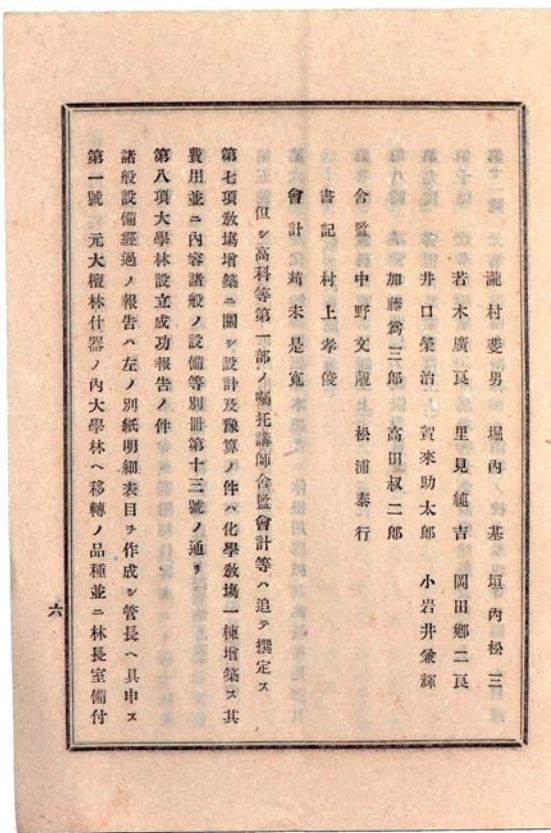 瀧村斐男　堀內　基　垣內松三
若木廣良　里見純吉　岡田鄉二良
井口榮治　賀來助太郎　小岩井兼輝
加藤爲三郎　高田叔二郎
舍監　中野文靚　松浦泰行
書記　村上孝俊
會計　苅末是寬
但シ高科等第一部ノ囑托講師舍監會計等ハ追テ撰定ス
第七項敎塲增築ニ關シ設計及豫算ノ件ハ化學敎塲一棟增築ス其
費用並ニ內容諸般ノ設備等別冊第十三號ノ通リ
第八項大學林設立成功報告ノ件
諸般設備經過ノ報告ハ左ノ別紙明細表目ヲ作成シ管長ヘ具申ス
第一號　元大檀林什器ノ內大學林ヘ移轉ノ品種並ニ林長室備付
六